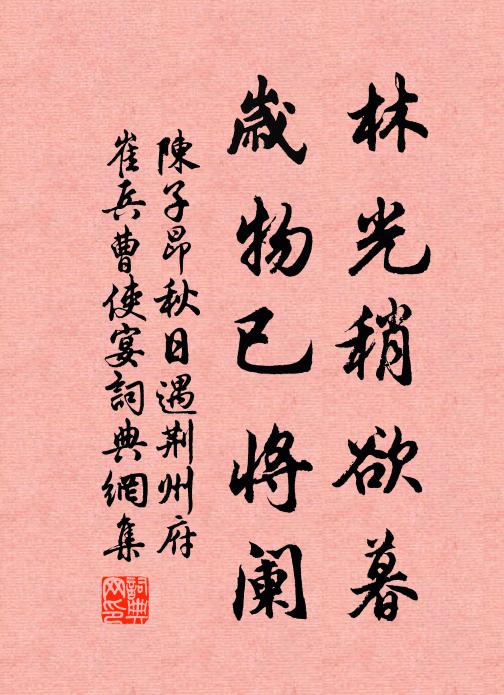 林光稍欲暮
歲物已將阑
陳子昂秋日遇荆州府
崔兵曹使宴詞典網集
詞典
网印